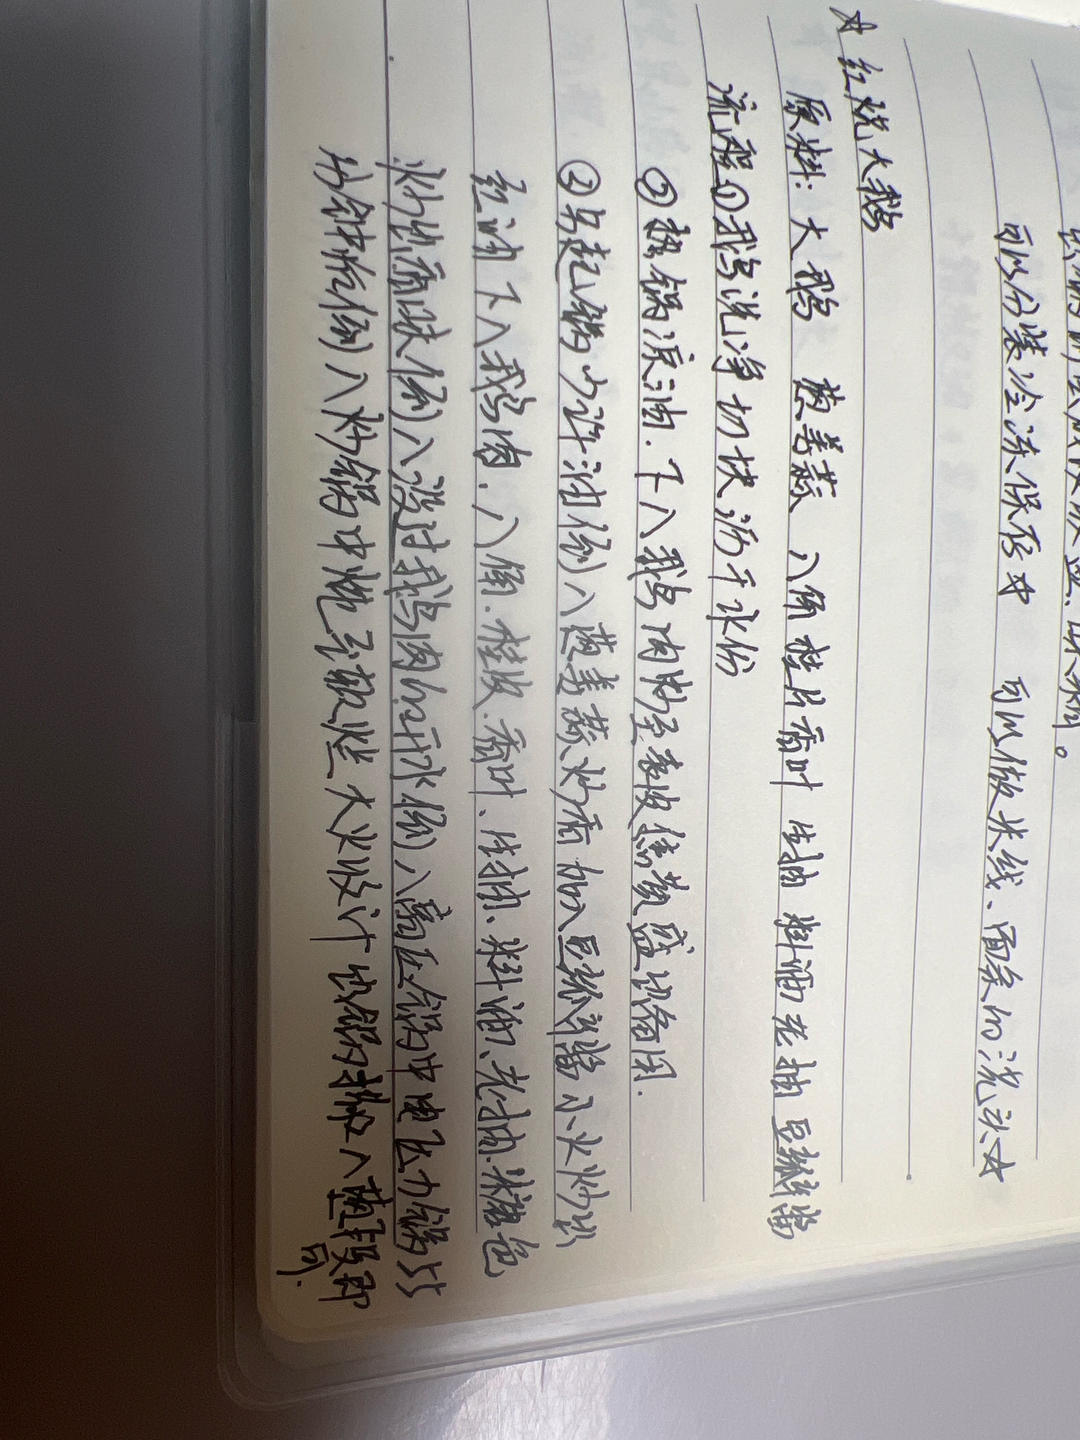 可以分装冷冻保存☆ 可以做米线、面条的浇头☆
☆ 红烧大鹅
原料: 大鹅 葱姜蒜 八角 桂皮 香叶 生抽 料酒 老抽 豆瓣酱
流程①鹅洗净切块沥干水份
②热锅凉油.下入鹅肉炒至表皮焦黄盛出备用.
③另起锅少许油倒入葱姜蒜炒香加入豆瓣酱小火炒出
红油下入鹅肉.八角.桂皮.香叶、生抽、料酒、老抽.糖色
炒出香味倒入没过鹅肉的开水倒入高压锅中电压力锅25
分钟后倒入炒锅中炖至软烂 大火收汁 出锅撒入葱段即
可.